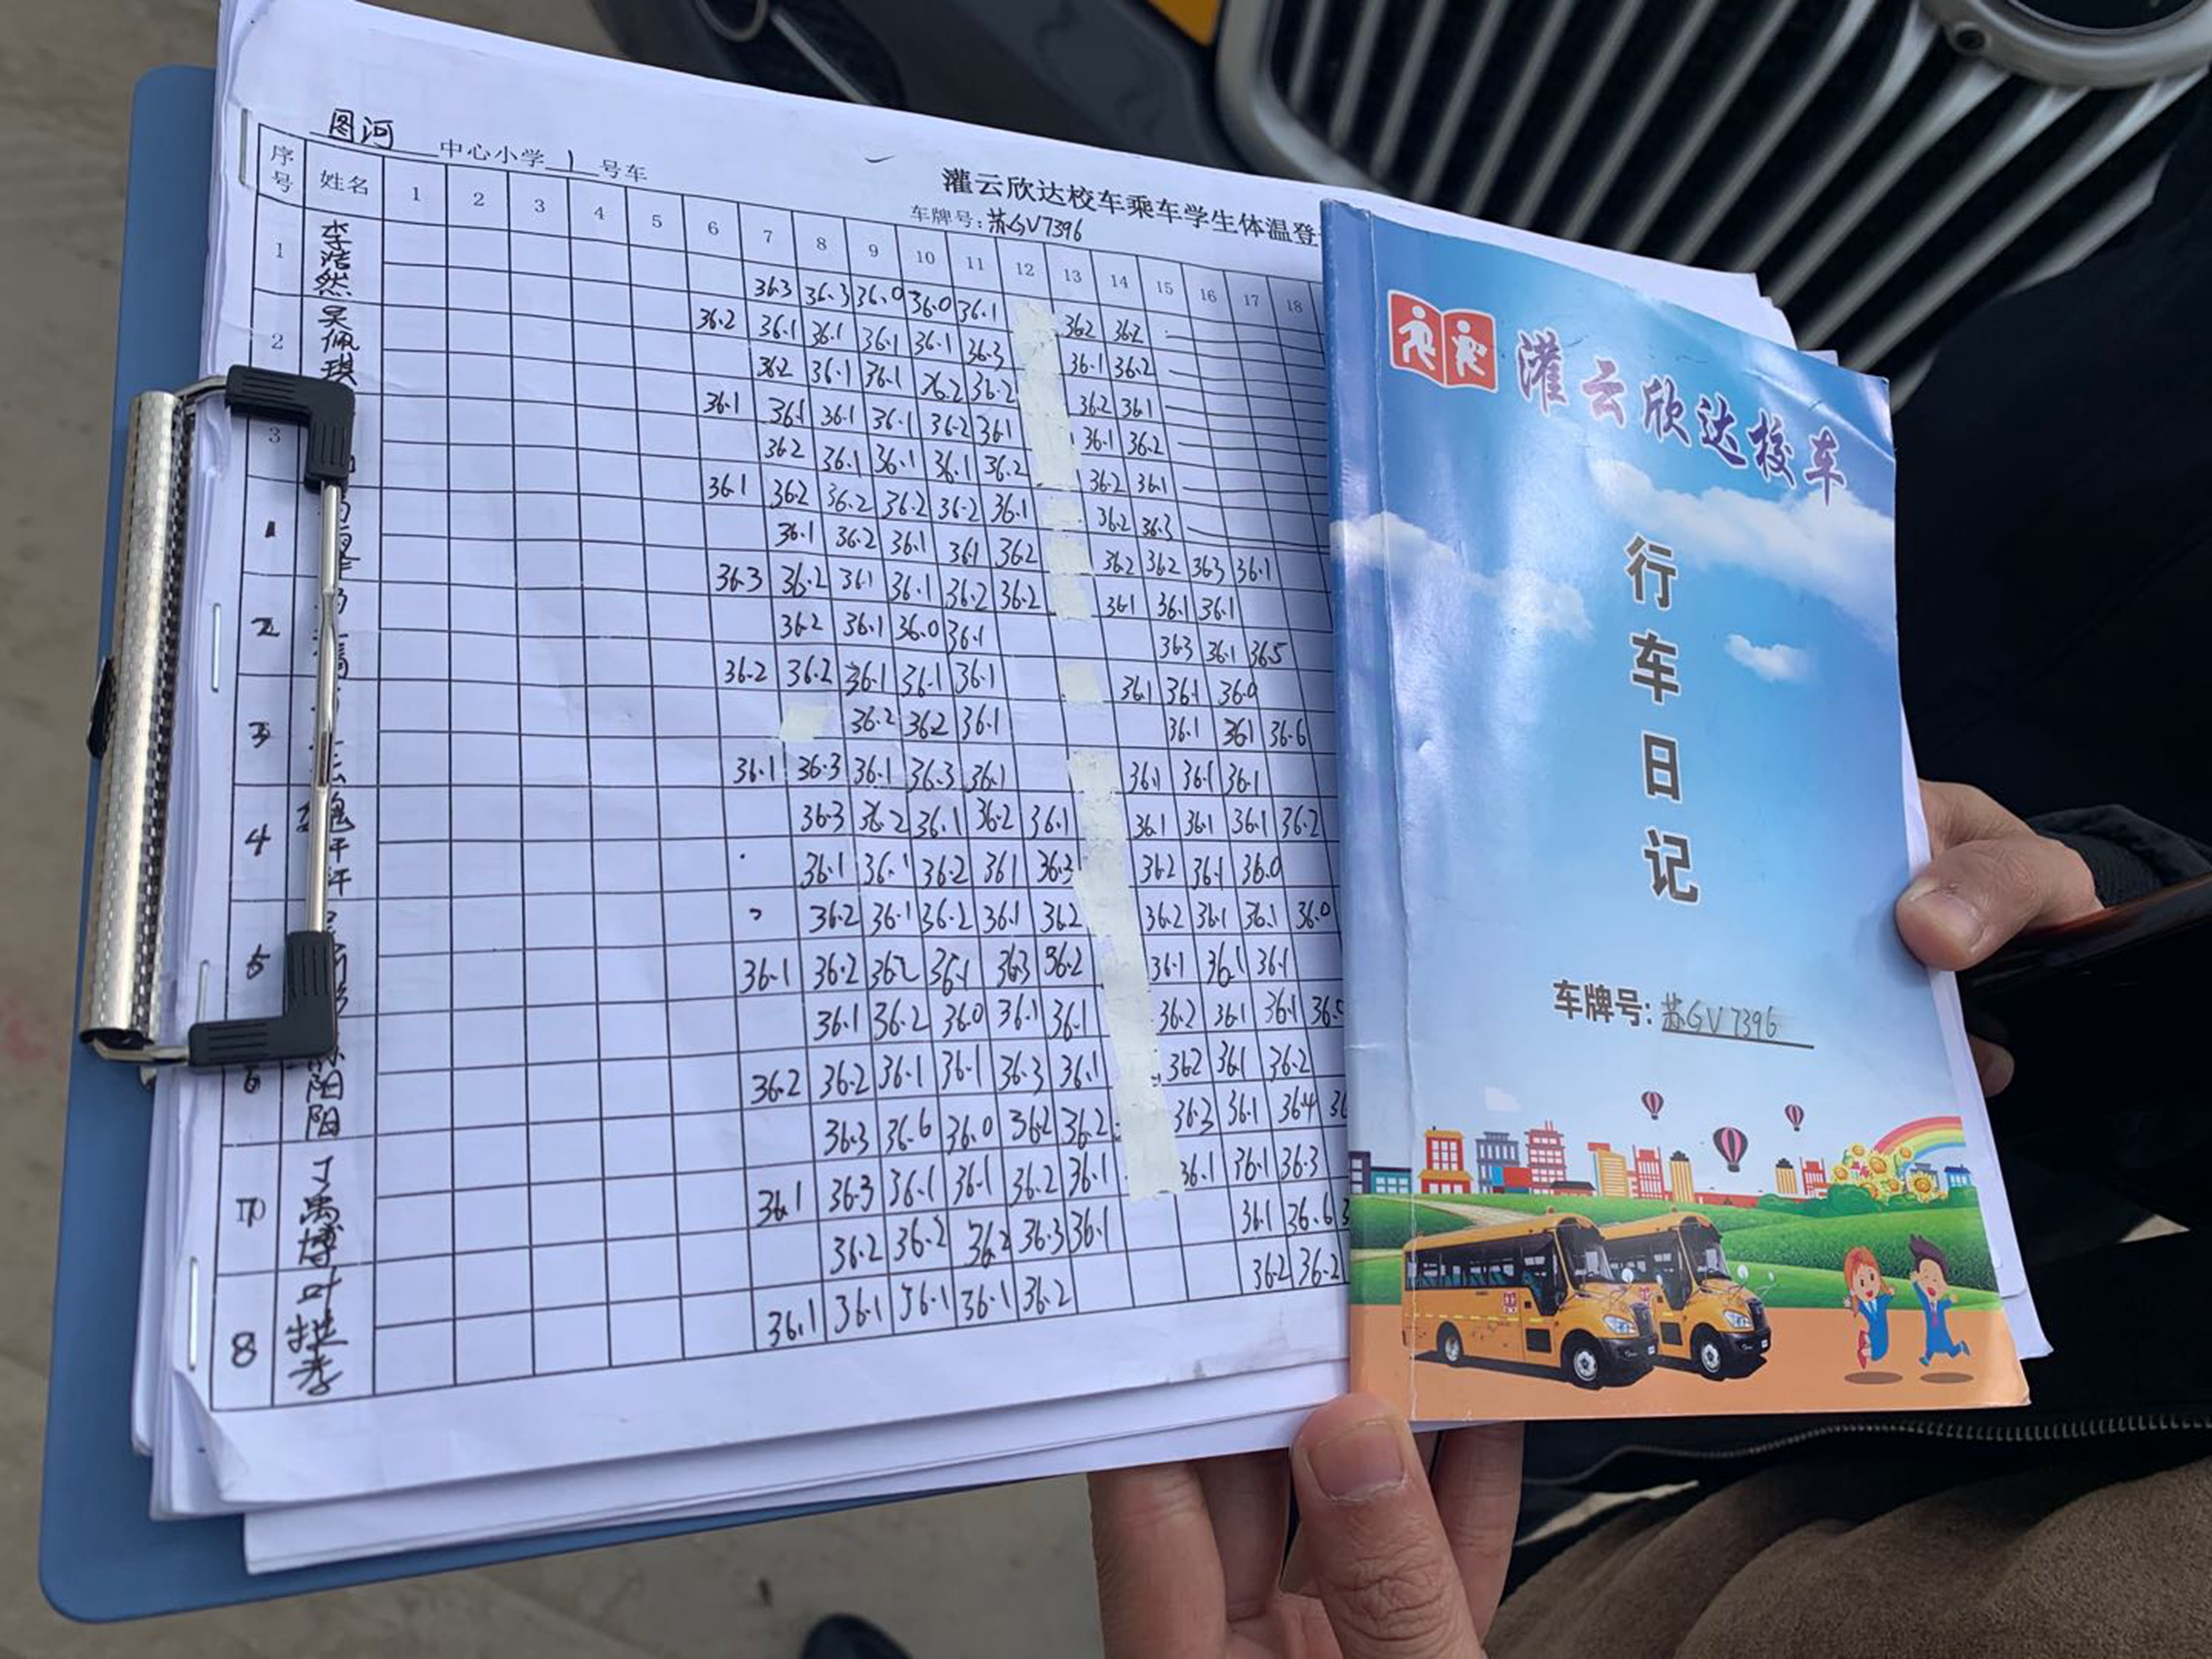 图河 中心小学 1 号车
灌云欣达校车乘车学生体温登
车牌号:苏GV7396
序号 姓名 1 2 3 4 5 6 7 8 9 10 11 12 13 14 15 16 17 18
1 李浩然 36.3 36.3 36.0 36.0 36.1
36.2 36.1 36.1 36.1 36.1 36.3 36.2 36.2
2 吴佩琪 36.2 36.1 36.1 36.2 36.2 36.1 36.2
36.1 36.1 36.1 36.1 36.2 36.1 36.2 36.1
3 36.2 36.1 36.1 36.1 36.2 36.1 36.2
36.1 36.2 36.2 36.2 36.2 36.1 36.2 36.1
1 36.1 36.2 36.1 36.1 36.2 36.2 36.3
36.3 36.2 36.1 36.1 36.2 36.2 36.2 36.2 36.3 36.1
2 36.2 36.1 36.0 36.1 36.1 36.1 36.1
36.2 36.2 36.1 36.1 36.1 36.3 36.1 36.5
3 36.2 36.2 36.1 36.1 36.1 36.0
36.1 36.3 36.1 36.3 36.1 36.1 36.1 36.6
4 36.3 36.2 36.1 36.2 36.1 36.1 36.1 36.1
36.1 36.1 36.2 36.1 36.3 36.1 36.1 36.1 36.2
5 36.2 36.1 36.2 36.1 36.2 36.2 36.1 36.0
36.1 36.2 36.2 36.1 36.3 36.2 36.2 36.1 36.1 36.0
6 阳阳 36.1 36.2 36.0 36.1 36.1 36.1 36.1 36.1
36.2 36.2 36.1 36.1 36.3 36.1 36.2 36.1 36.1
7 丁禹博 36.3 36.6 36.0 36.2 36.2 36.2 36.1 36.2
36.1 36.3 36.1 36.1 36.2 36.1 36.3 36.1 36.4
8 叶 36.2 36.2 36.2 36.3 36.1 36.1 36.1 36.3
36.1 36.1 36.1 36.1 36.2 36.1 36.6
36.2 36.2
灌云欣达校车
行车日记
车牌号:苏GV7396